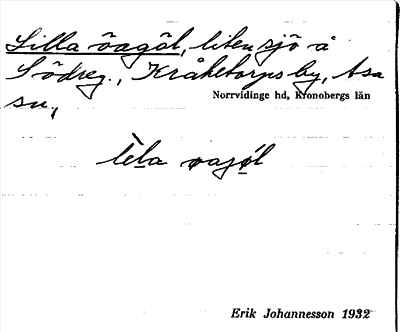 Lilla öagöl, liten sjö å
Södreg., Kråketorps by, Asa
sn,
Norrvidinge hd, Kronobergs län
lèla øagøl
Erik Johannesson 1932